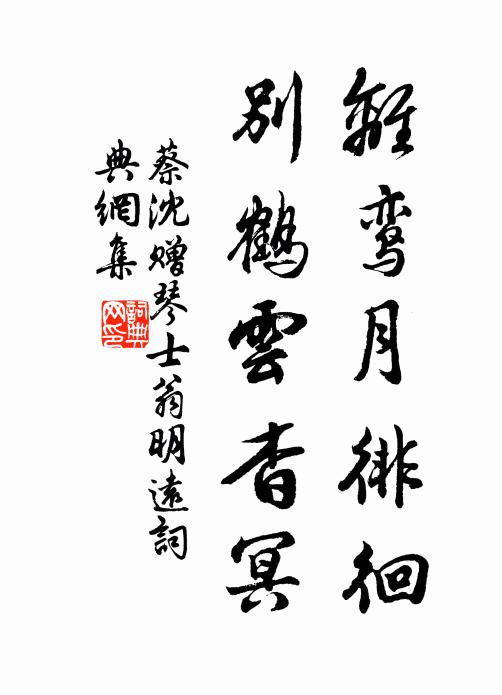 離鸾月徘徊
別鶴雲杳冥
蔡沈贈琴士翁明遠詞
典網集
詞典
网印